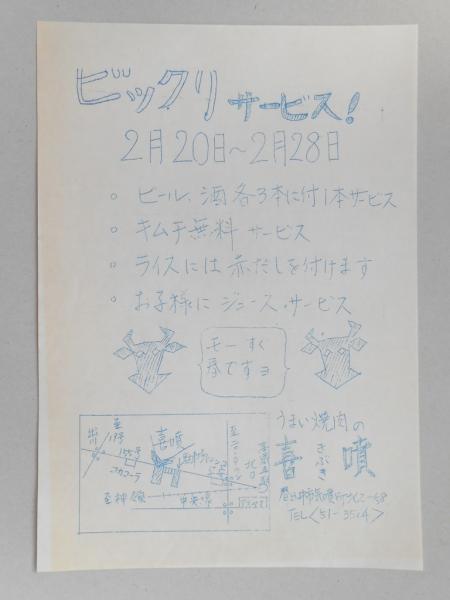 ビックリ サービス!
2月20日〜2月28日
○ ビール、酒 各3本に付1本サービス
○ キムチ無料 サービス
○ ライスには 赤だしを付けます
○ お子様に ジュース、サービス
モーすぐ
春ですョ
うまい焼肉の
喜噴
きぶき
TEL<51-3564>
至
19号
155号
コカコーラ
喜噴
至神領
中央線
北口